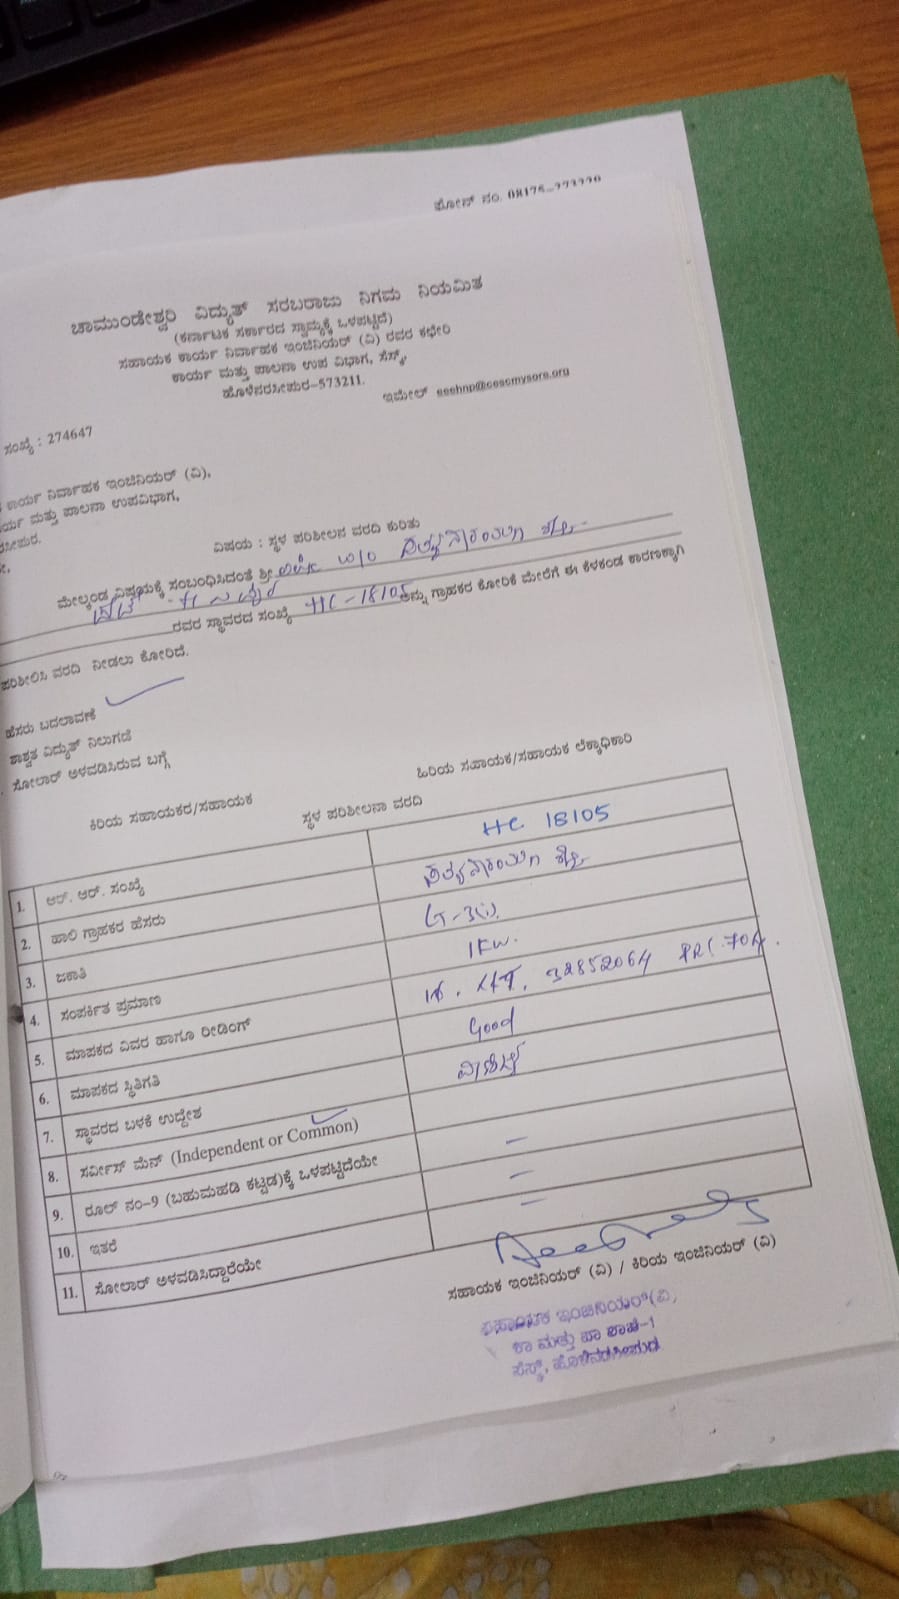 ಫೋನ್ ನಂ. 08175-273220
ಚಾಮುಂಡೇಶ್ವರಿ ವಿದ್ಯುತ್ ಸರಬರಾಜು ನಿಗಮ ನಿಯಮಿತ
(ಕರ್ನಾಟಕ ಸರ್ಕಾರದ ಸ್ವಾಮ್ಯಕ್ಕೆ ಒಳಪಟ್ಟಿದೆ)
ಸಹಾಯಕ ಕಾರ್ಯ ನಿರ್ವಾಹಕ ಇಂಜಿನಿಯರ್ (ವಿ) ರವರ ಕಛೇರಿ
ಕಾರ್ಯ ಮತ್ತು ಪಾಲನಾ ಉಪ ವಿಭಾಗ, ಸೆಸ್ಕ್,
ಹೊಳೆನರಸೀಪುರ-573211.
ಇಮೇಲ್ eeehnp@cescmysore.org
ಸಂಖ್ಯೆ : 274647
ಕಾರ್ಯ ನಿರ್ವಾಹಕ ಇಂಜಿನಿಯರ್ (ವಿ),
ರ್ಯ ಮತ್ತು ಪಾಲನಾ ಉಪವಿಭಾಗ,
ಸೀಪುರ.
ವಿಷಯ : ಸ್ಥಳ ಪರಿಶೀಲನ ವರದಿ ಕುರಿತು
ಮೇಲ್ಕಂಡ ವಿಷಯಕ್ಕೆ ಸಂಬಂಧಿಸಿದಂತೆ ಶ್ರೀ W/O ಸತ್ಯನಾರಾಯಣ ಶೆಟ್ಟಿ
ರವರ ಸ್ಥಾವರದ ಸಂಖ್ಯೆ HC-18105 ಅನ್ನು ಗ್ರಾಹಕರ ಕೋರಿಕೆ ಮೇರೆಗೆ ಈ ಕೆಳಕಂಡ ಕಾರಣಕ್ಕಾಗಿ
ಪರಿಶೀಲಿಸಿ ವರದಿ ನೀಡಲು ಕೋರಿದೆ.
ಹೆಸರು ಬದಲಾವಣೆ
ಶಾಶ್ವತ ವಿದ್ಯುತ್ ನಿಲುಗಡೆ
ಸೋಲಾರ್ ಅಳವಡಿಸಿರುವ ಬಗ್ಗೆ
ಕಿರಿಯ ಸಹಾಯಕರ/ಸಹಾಯಕ ಹಿರಿಯ ಸಹಾಯಕ/ಸಹಾಯಕ ಲೆಕ್ಕಾಧಿಕಾರಿ
ಸ್ಥಳ ಪರಿಶೀಲನಾ ವರದಿ
1. ಆರ್. ಆರ್. ಸಂಖ್ಯೆ HC 18105
2. ಹಾಲಿ ಗ್ರಾಹಕರ ಹೆಸರು ಸತ್ಯನಾರಾಯಣ ಶೆಟ್ಟಿ
3. ಜಕಾತಿ LT-3(i).
4. ಸಂಪರ್ಕಿತ ಪ್ರಮಾಣ 1KW.
5. ಮಾಪಕದ ವಿವರ ಹಾಗೂ ರೀಡಿಂಗ್ 32852064
6. ಮಾಪಕದ ಸ್ಥಿತಿಗತಿ Good
7. ಸ್ಥಾವರದ ಬಳಕೆ ಉದ್ದೇಶ ವಾಣಿಜ್ಯ
8. ಸರ್ವೀಸ್ ಮೆನ್ (Independent or Common)
9. ರೂಲ್ ನಂ-9 (ಬಹುಮಹಡಿ ಕಟ್ಟಡ)ಕ್ಕೆ ಒಳಪಟ್ಟಿದೆಯೇ –
10. ಇತರೆ –
11. ಸೋಲಾರ್ ಅಳವಡಿಸಿದ್ದಾರೆಯೇ –
ಸಹಾಯಕ ಇಂಜಿನಿಯರ್ (ವಿ) / ಕಿರಿಯ ಇಂಜಿನಿಯರ್ (ವಿ)
ಸಹಾಯಕ ಇಂಜಿನಿಯರ್(ವಿ)
ಕಾ ಮತ್ತು ಪಾ ಶಾಖೆ-1
ಸೆಸ್ಕ್, ಹೊಳೆನರಸೀಪುರ